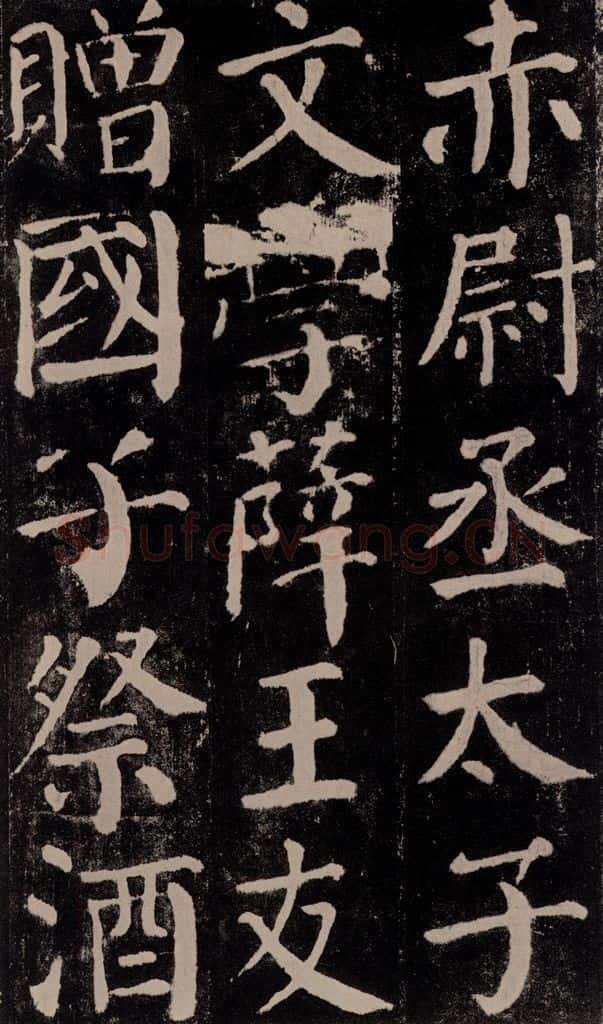 赤尉丞太子
文學薛王友
贈國子祭酒
Shufawang.CN